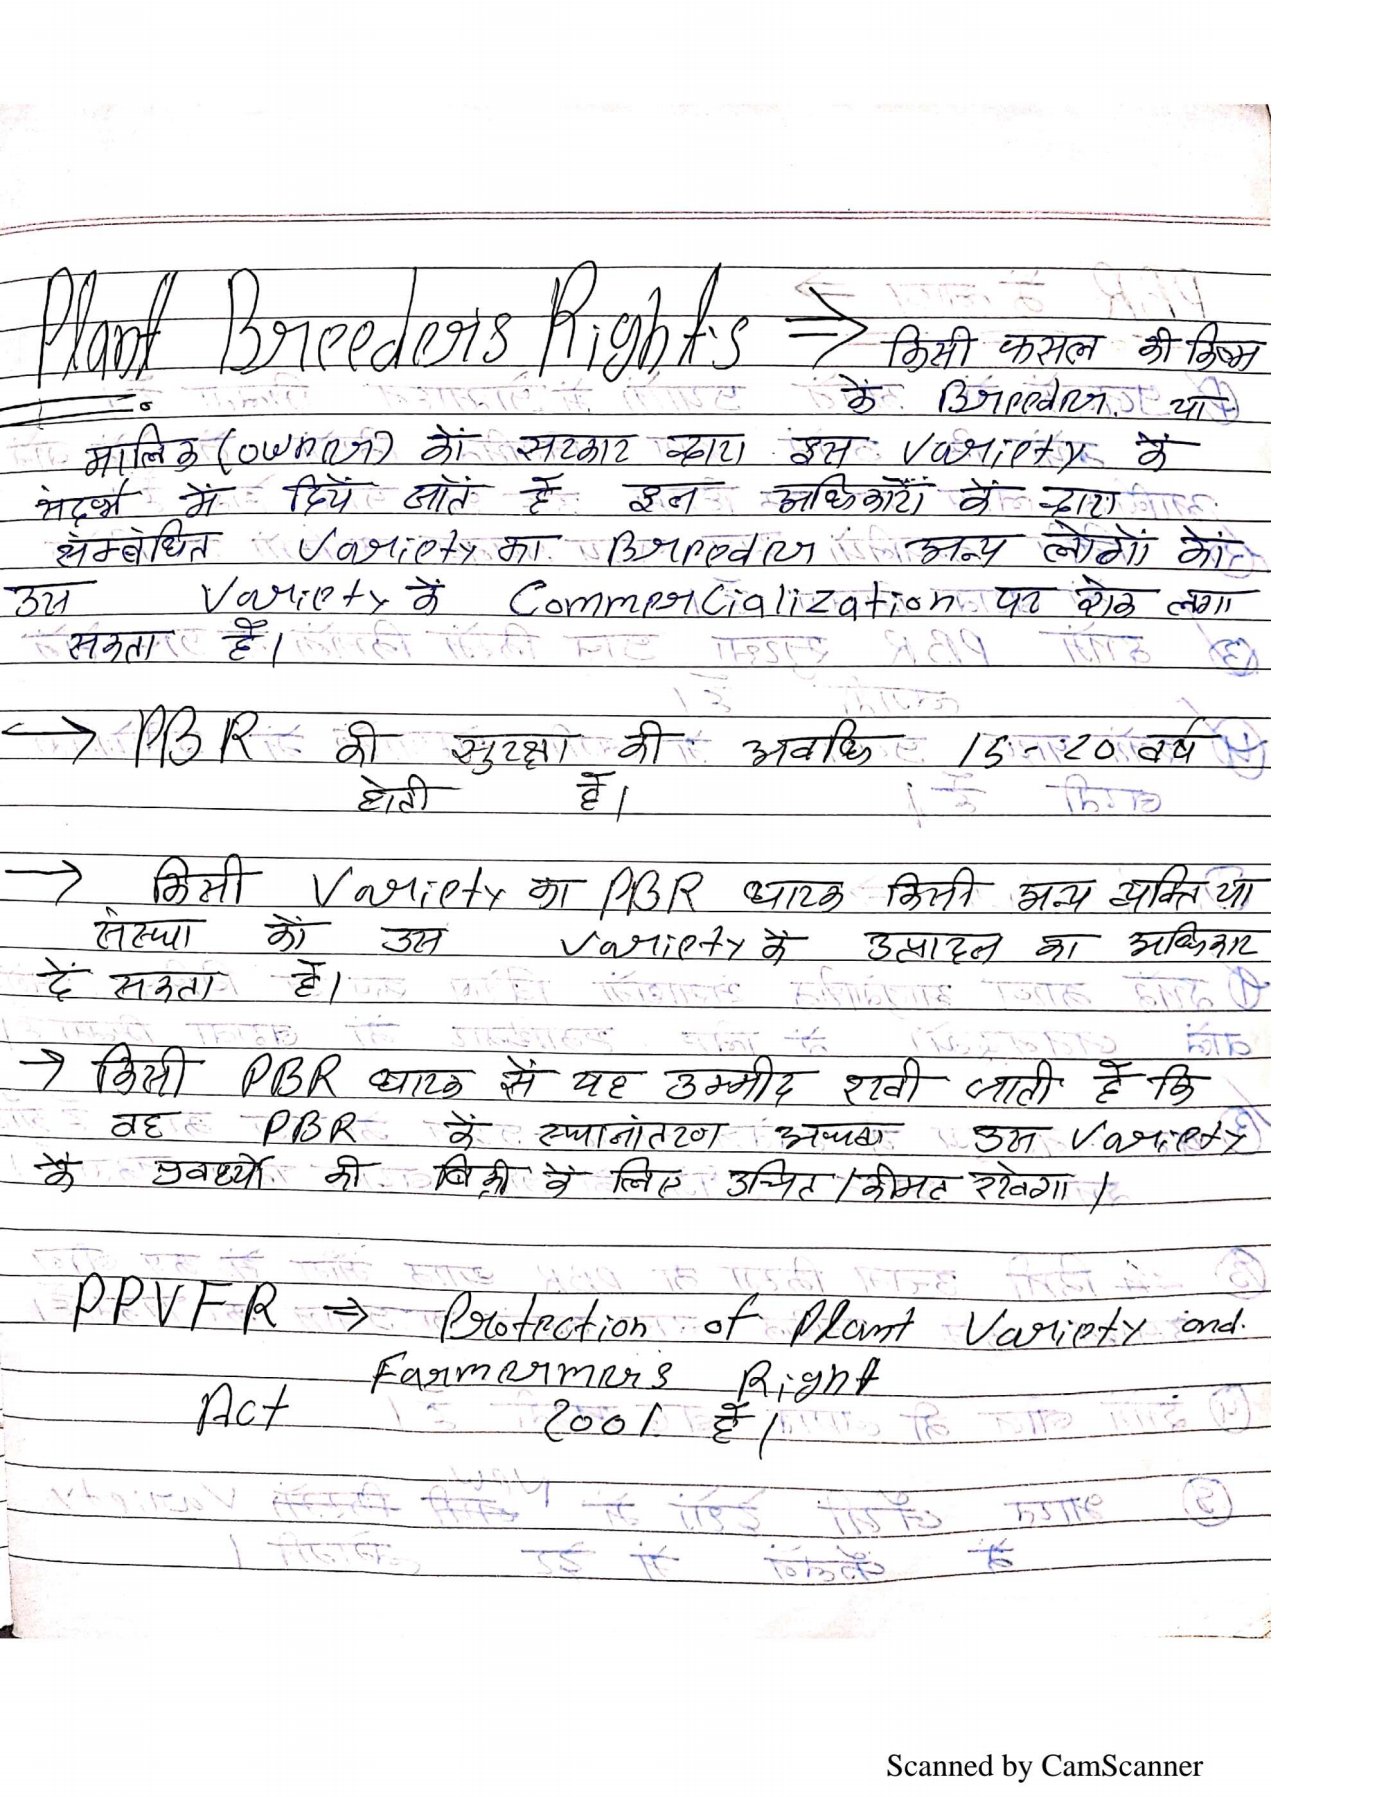 Plant Breeders Rights ⇒ किसी फसल की किस्म
के Breeder या
मालिक (owner) को सरकार द्वारा इस Variety के
संदर्भ में दिये जाते हैं इन अधिकारों के द्वारा
सम्बंधित Variety का Breeder अन्य लोगों को
उस Variety के Commercialization पर रोक लगा
सकता है।
→ PBR की सुरक्षा की अवधि 15-20 वर्ष
होती है।
→ किसी Variety का PBR धारक किसी अन्य व्यक्ति या
संस्था को उस Variety के उत्पादन का अधिकार
दे सकता है।
→ किसी PBR धारक से यह उम्मीद रखी जाती है कि
वह PBR के स्थानांतरण अथवा उस Variety
के की बिक्री के लिए उचित कीमत रखेगा।
PPVFR ⇒ Protection of Plant Variety and
Farmermers Right
Act 2001 है।
Scanned by CamScanner